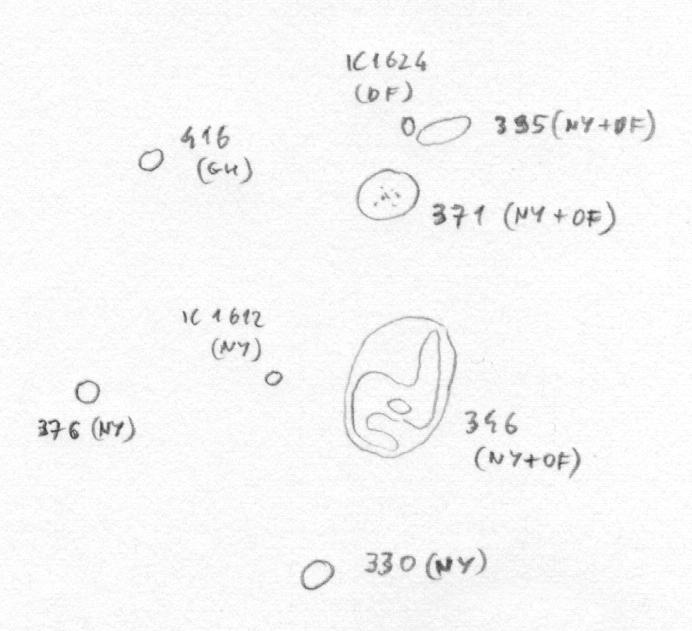 IC1624
(DF)
395 (NY+DF)
416
(GH)
371 (NY+DF)
IC 1612
(NY)
376 (NY)
346
(NY+DF)
330 (NY)